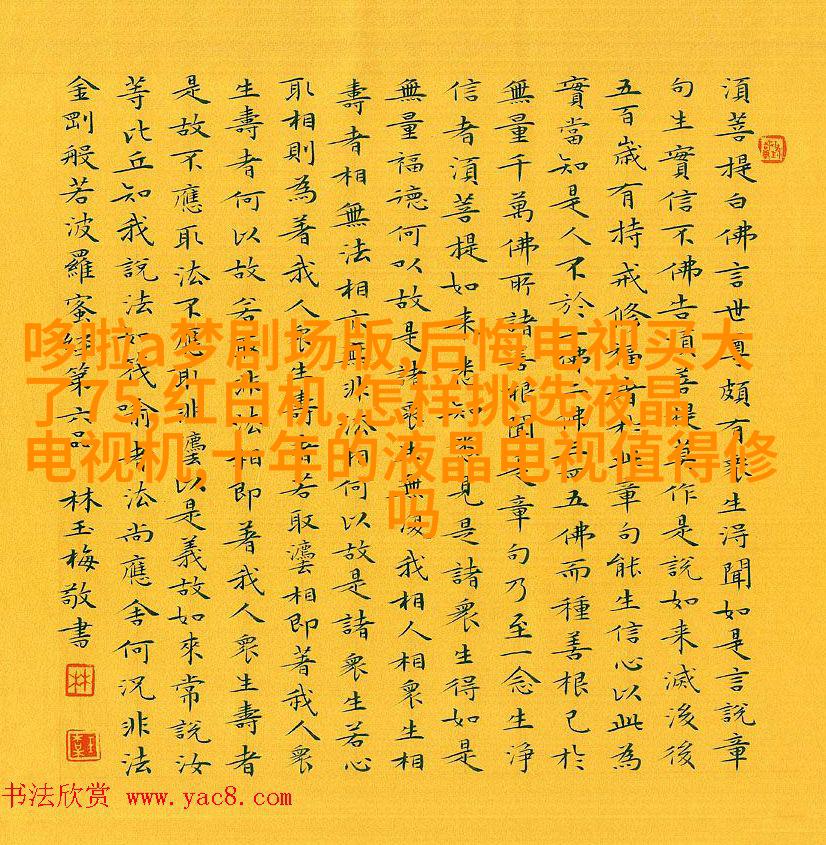 須菩提白佛言世尊頗有衆生淂聞如是言說章
句生實信不佛告須菩提莫作是說如来滅後後
五百歲有持戒修福者於此章句能生信心以此為
實當知是人不於一佛二佛五佛而種善根已於
無量千萬佛所諸善根聞是章句乃至一念生淨
信者須菩提如来悉知悉見是諸衆生得如是
無量福德何以故是諸衆生無復我相人相衆生相
壽者相無法相亦無非法相何以故是諸衆生若心
取相則為著我人衆生壽者若取灋相即著我人衆
生壽者何以故若取非法相即著我人衆生壽者
是故不應取法不應取非灋以是義故如來常說汝
等比丘知我說法如筏喻者法尚應舍何況非法
金剛般若波羅蜜經第六品 林玉梅敬書
林
哆啦a梦剧场版,后悔电视买大
了75,红白机,怎样挑选液晶
电视机,十年的液晶电视值得修
吗
书法欣赏 www.yac8.com